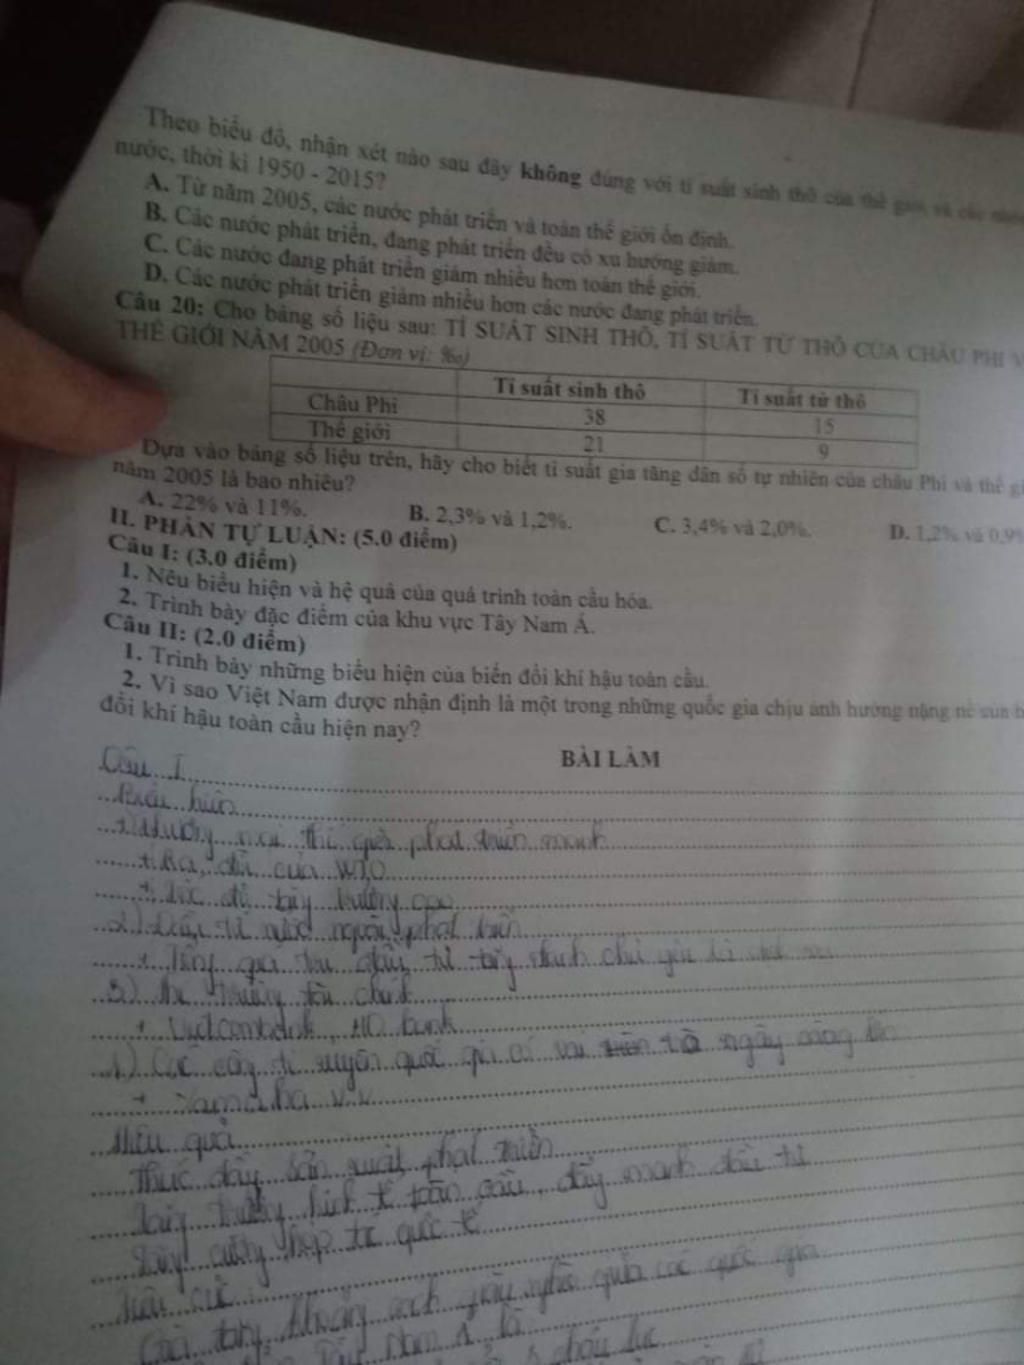 Theo biểu đồ, nhận xét nào sau đây không đúng với tỉ suất sinh thô của thế giới và các
nước, thời kì 1950 - 2015?
A. Từ năm 2005, các nước phát triển và toàn thế giới ổn định.
B. Các nước phát triển, đang phát triển đều có xu hướng giảm.
C. Các nước đang phát triển giảm nhiều hơn toàn thế giới.
D. Các nước phát triển giảm nhiều hơn các nước đang phát triển.
Câu 20: Cho bảng số liệu sau: TỈ SUẤT SINH THÔ, TỈ SUẤT TỬ THÔ CỦA CHÂU PHI
THẾ GIỚI NĂM 2005 (Đơn vị: ‰)
Tỉ suất sinh thô Tỉ suất tử thô
Châu Phi 38 15
Thế giới 21 9
Dựa vào bảng số liệu trên, hãy cho biết tỉ suất gia tăng dân số tự nhiên của châu Phi và thế
năm 2005 là bao nhiêu?
A. 22% và 11%. B. 2,3% và 1,2%. C. 3,4% và 2,0%. D. 1,2% và 0,9%
II. PHẦN TỰ LUẬN: (5.0 điểm)
Câu I: (3.0 điểm)
1. Nêu biểu hiện và hệ quả của quá trình toàn cầu hóa.
2. Trình bày đặc điểm của khu vực Tây Nam Á.
Câu II: (2.0 điểm)
1. Trình bày những biểu hiện của biến đổi khí hậu toàn cầu.
2. Vì sao Việt Nam được nhận định là một trong những quốc gia chịu ảnh hưởng nặng nề của
đổi khí hậu toàn cầu hiện nay?
BÀI LÀM
Câu I
hiện
phát triển mạnh
+ Ra đời của WTO
+ Tốc độ tăng trưởng cao
2) Đầu tư nước ngoài phát triển
+ đầu tư tăng
3) Thị trường tài chính
+ Vietcombank, HD bank
4) Các công ti xuyên quốc gia có vai trò ngày càng lớn
+ Yamaha v.v
Hệ quả
Thúc đẩy sản xuất phát triển
Tăng trưởng kinh tế toàn cầu, đẩy mạnh đầu tư
Tăng cường hợp tác quốc tế
Tiêu cực
Gia tăng khoảng cách giàu nghèo giữa các quốc gia
Nam Á là
châu lục